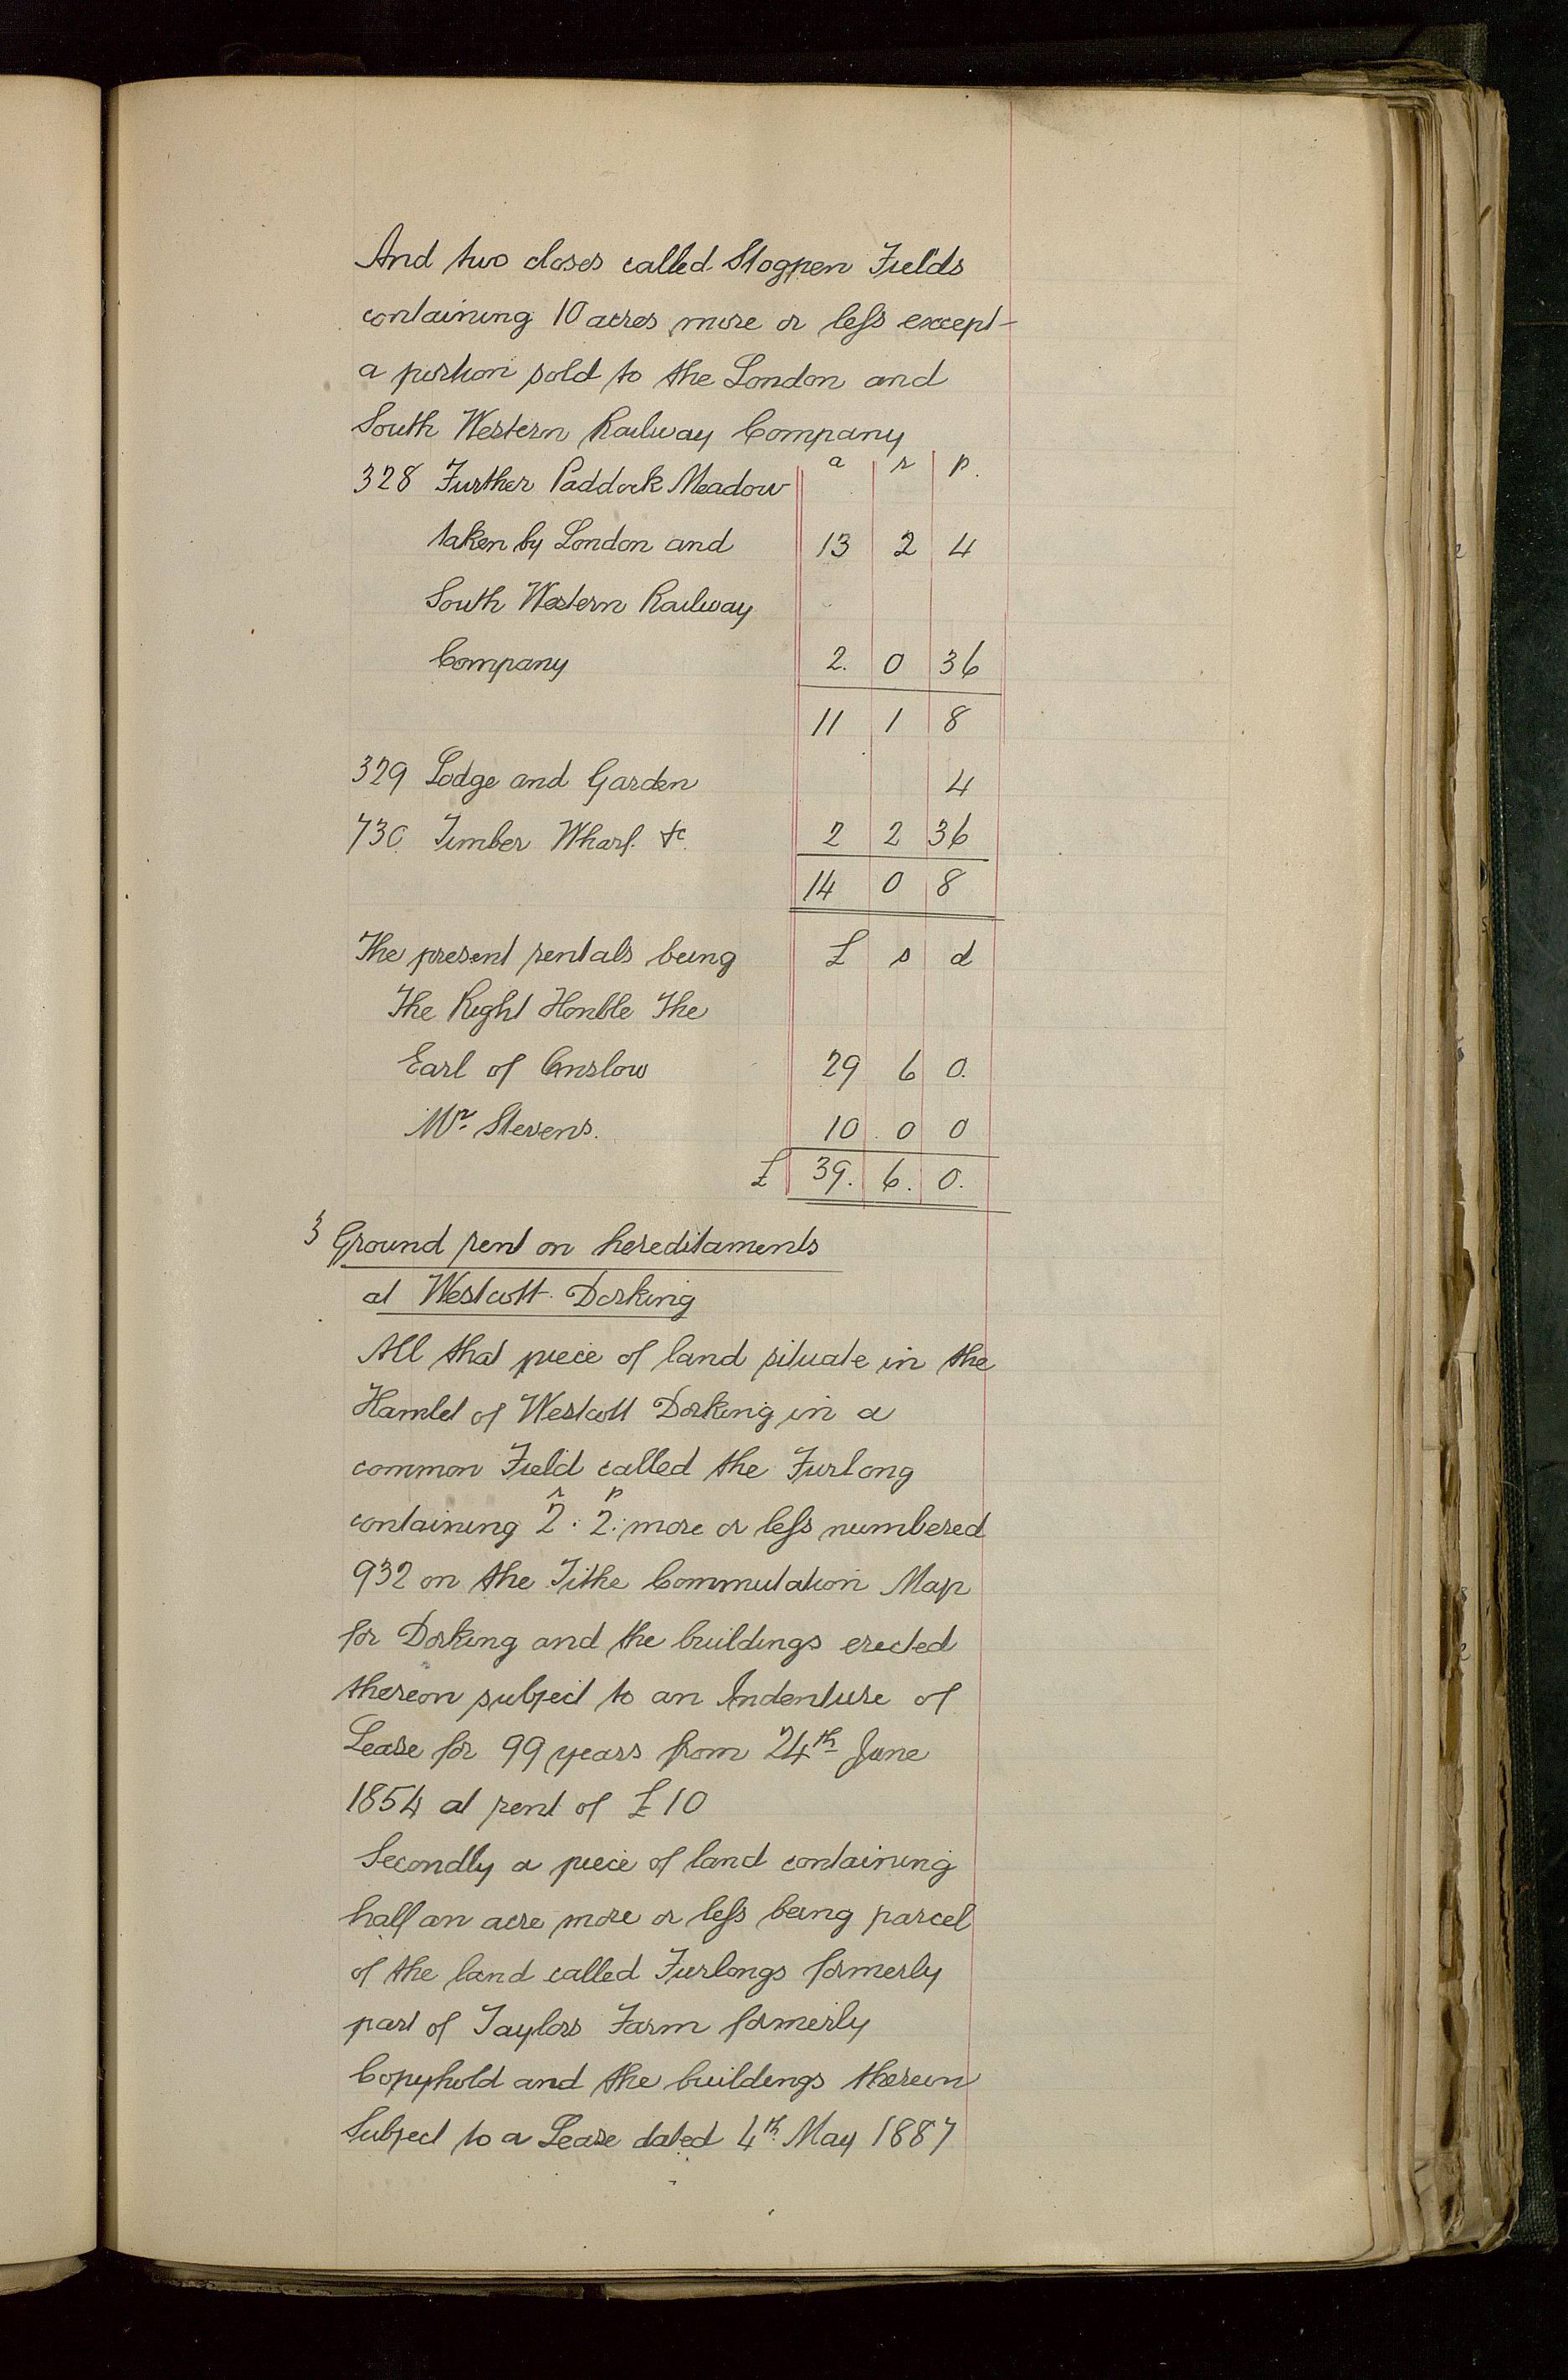 And two closes called Slogpen Fields
containing 10 acres more or less except
a portion sold to the London and
South Western Railway Company
a r p.
328 Further Paddock Meadow
taken by London and 13 2 4
South Western Railway
Company 2. 0 36
11 1 8
329 Lodge and Garden 4
730. Timber Wharf. &c. 2 2 36
14 0 8
The present rentals being £ s d
The Right Honble The
Earl of Onslow 29 6 0.
Mr. Stevens. 10. 0 0
£ 39. 6. 0.
3 Ground rent on hereditaments
at Westcott. Dorking
All that piece of land situate in the
Hamlet of Westcott Dorking in a
common Field called the Furlong
r p
containing 2. 2. more or less numbered
932 on the Tithe Commutation Map
for Dorking and the buildings erected
thereon subject to an Indenture of
Lease for 99 years from 24th June
1854 at rent of £10
Secondly a piece of land containing
half an acre more or less being parcel
of the land called Furlongs formerly
part of Taylors Farm formerly
Copyhold and the buildings thereon
Subject to a Lease dated 4th May 1887